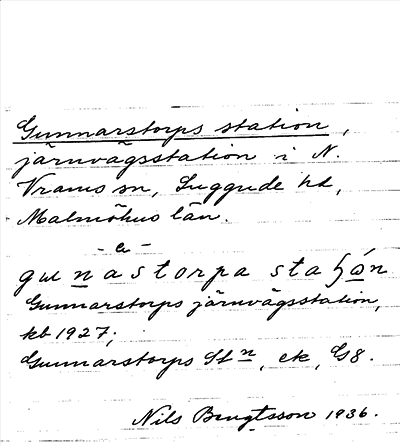 Gunnarstorps station,
järnvägsstation i N.
Vrams sn, Luggude hd,
Malmöhus län.
- a -
gunastorpa staʃón
Gunnarstorps järnvägsstation,
kb 1927;
Gunnarstorps Stn, ek, G8.
Nils Bengtsson 1936.